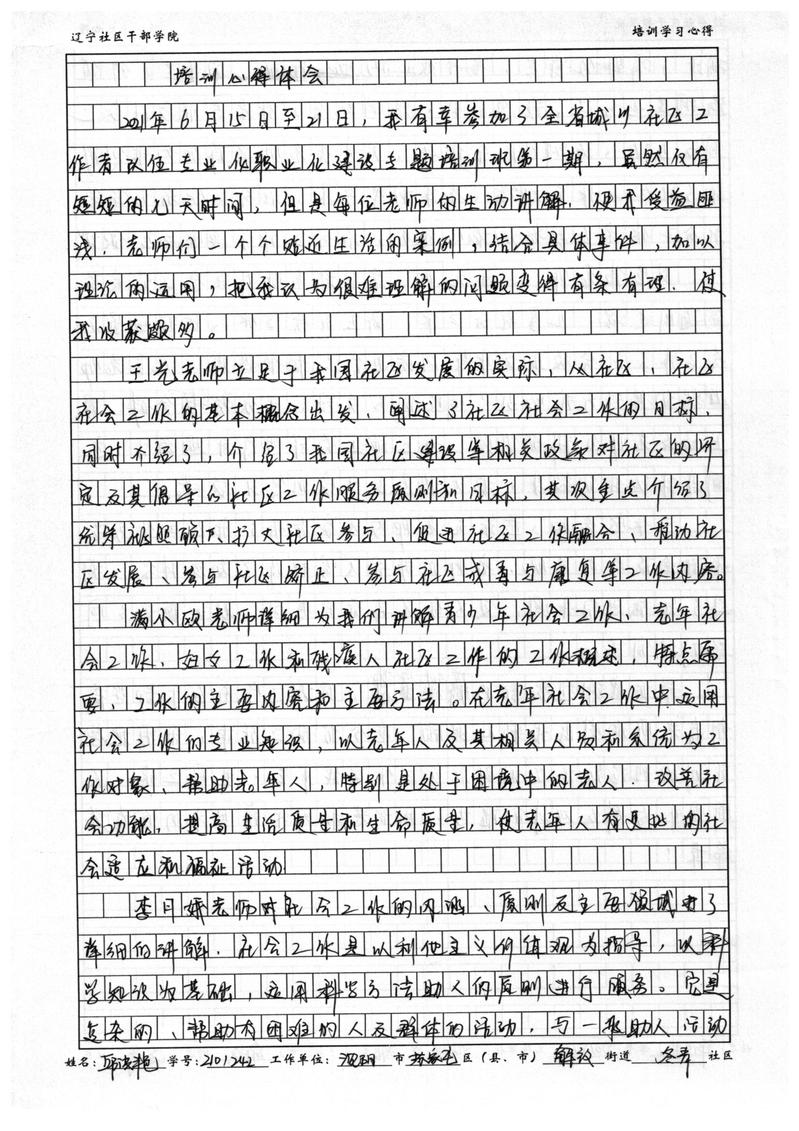 辽宁社区干部学院 培训学习心得
培训心得体会
2021年6月15日至21日，我有幸参加了全省城乡社区工
作者队伍专业化职业化建设专题培训班第一期，虽然仅有
短短的七天时间，但是每位老师的生动讲解，使我受益匪
浅，老师们一个个贴近生活的案例，结合具体事件，加以
理论的运用，把我认为很难理解的问题变得有条有理，使
我收获颇多。
王光老师立足于我国社区发展的实际，从社区、社区
社会工作的基本概念出发，阐述了社区社会工作的目标，
同时介绍了，介绍了我国社区建设等相关政策对社区的界
定及其倡导的社区工作服务原则和目标，其次重点介绍了
扩大社区参与、促进社区工作融合、推动社
区发展、参与社区矫正、参与社区戒毒与康复等工作内容。
满小欧老师详细为我们讲解青少年社会工作、老年社
会工作、妇女工作和残疾人社区工作的工作概述，特点需
要、工作的主要内容和主要方法。在老年社会工作中，运用
社会工作的专业知识，以老年人及其相关人员和系统为工
作对象、帮助老年人，特别是处于困境中的老人，改善社
会功能，提高生活质量和生命质量，使老年人有更好的社
会适应和福祉活动
李月娥老师对社会工作的内涵、原则及主要领域进了
详细的讲解。社会工作是以利他主义价值观为指导，以科
学知识为基础，运用科学方法助人的原则进行服务。它是
复杂的、帮助有困难的人及群体的活动，与一般助人活动
姓名： 学号：2101242 工作单位：沈阳 市 区（县、市） 解放 街道 社区